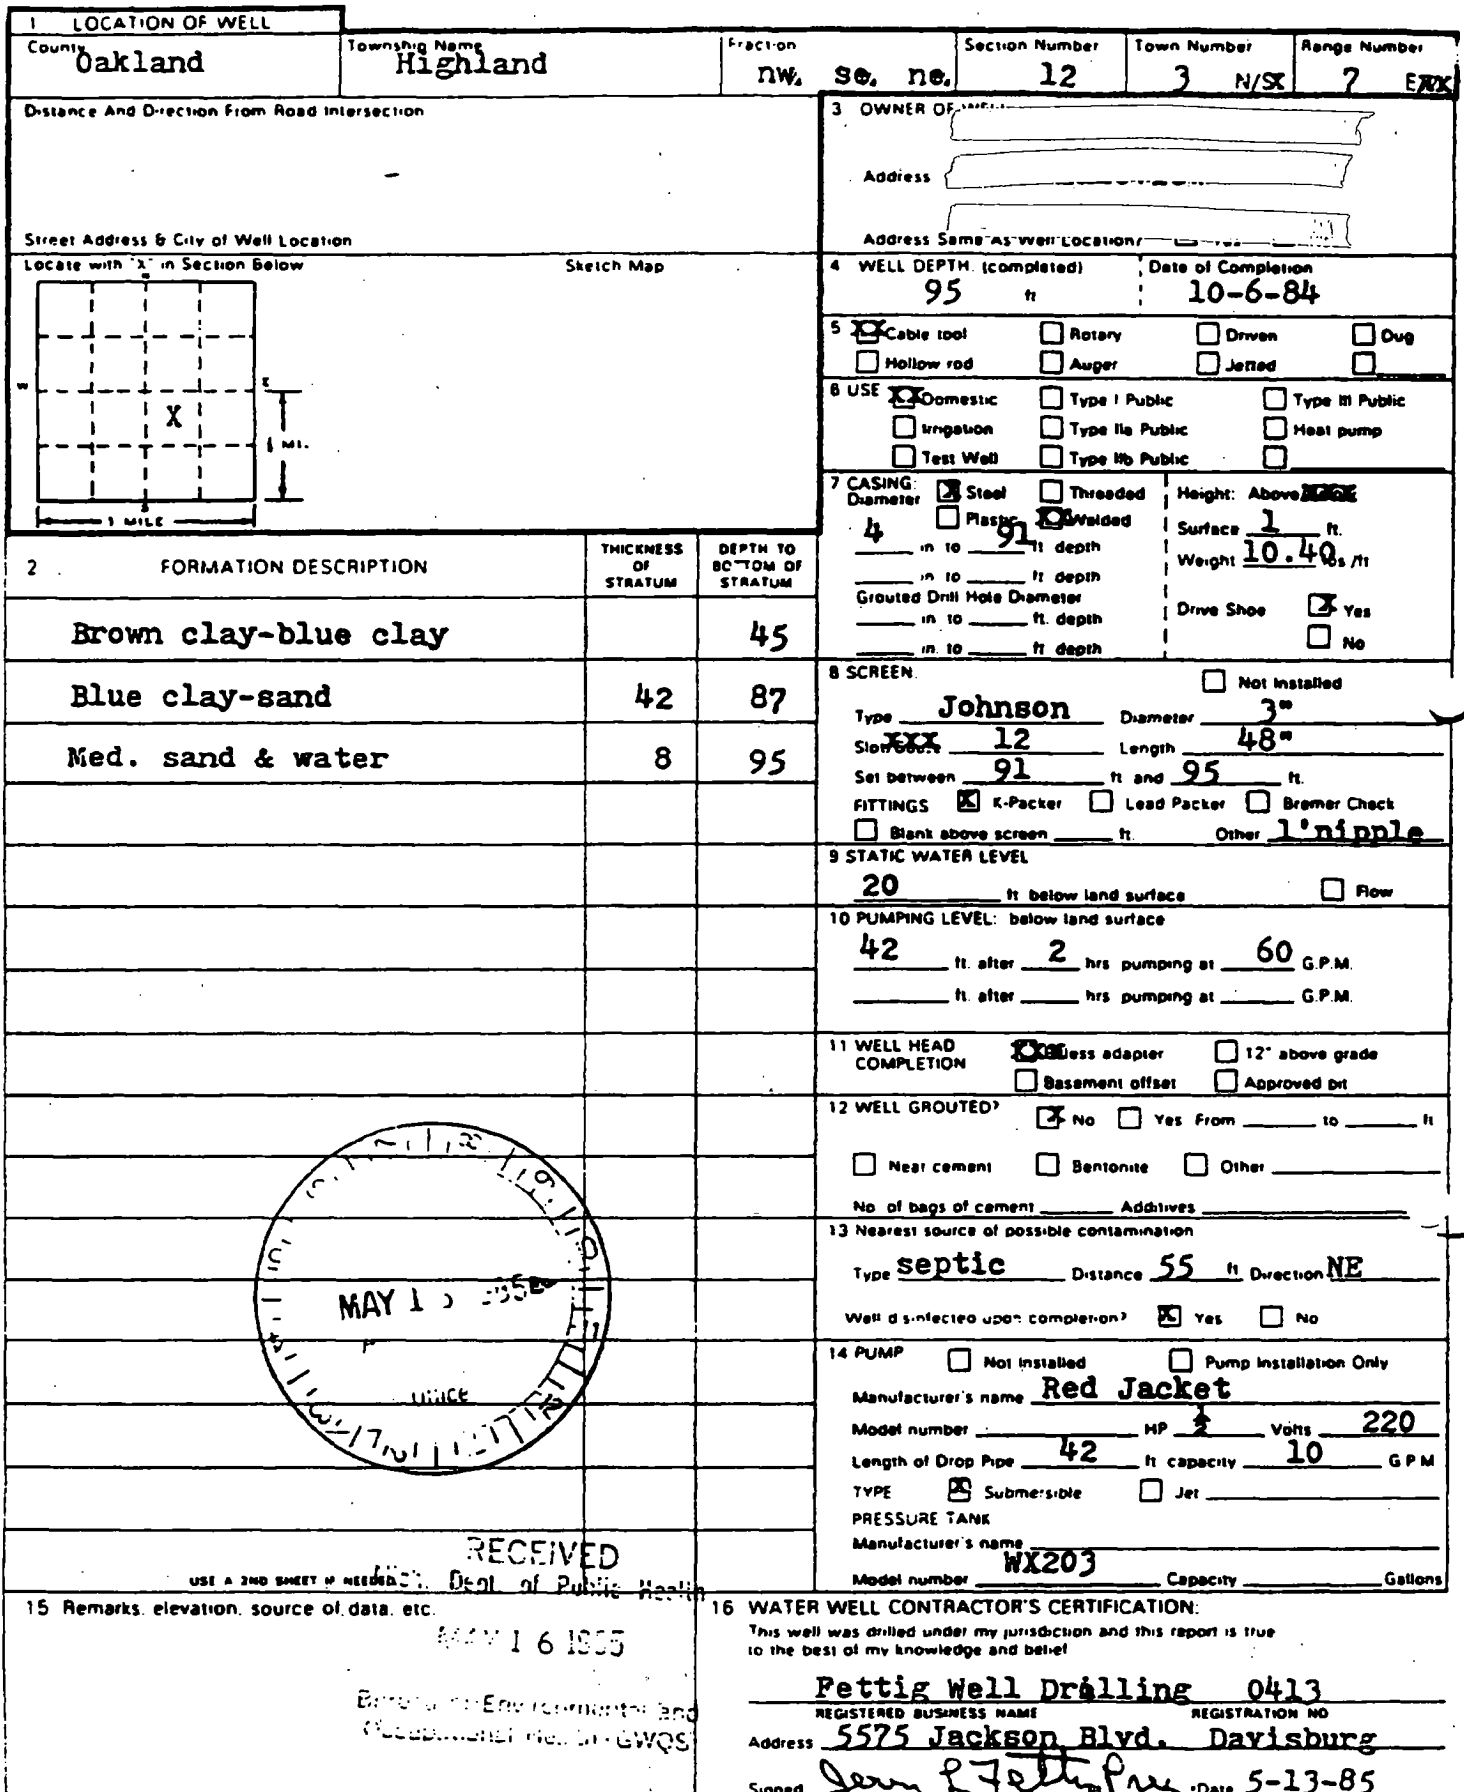 1 LOCATION OF WELL
County Oakland Township Name Highland Fraction nw. se. ne. Section Number 12 Town Number 3 N/S Range Number 7 E
Distance And Direction From Road Intersection
Street Address & City of Well Location
Locate with "X" in Section Below Sketch Map
W E
X
MI.
1 MILE
3 OWNER OF WELL
Address
Address Same As Well Location?
4 WELL DEPTH. (completed) Date of Completion
95 ft 10-6-84
5 XX Cable tool Rotary Driven Dug
Hollow rod Auger Jetted
6 USE XX Domestic Type I Public Type III Public
Irrigation Type IIa Public Heat pump
Test Well Type IIb Public
7 CASING: X Steel Threaded Height: Above
Diameter Plastic Welded Surface 1 ft.
4 in to 91 ft depth Weight 10.40 lbs /ft
in to ft depth
Grouted Drill Hole Diameter Drive Shoe X Yes
in to ft. depth No
in. to ft depth
2 FORMATION DESCRIPTION THICKNESS OF STRATUM DEPTH TO BOTTOM OF STRATUM
Brown clay-blue clay 45
Blue clay-sand 42 87
Med. sand & water 8 95
8 SCREEN. Not Installed
Type Johnson Diameter 3"
Slot XXX 12 Length 48"
Set between 91 ft and 95 ft.
FITTINGS X K-Packer Lead Packer Bremer Check
Blank above screen ft. Other 1'nipple
9 STATIC WATER LEVEL
20 ft below land surface Flow
10 PUMPING LEVEL: below land surface
42 ft. after 2 hrs pumping at 60 G.P.M.
ft. after hrs pumping at G.P.M.
11 WELL HEAD COMPLETION Pitless adapter 12" above grade
Basement offset Approved pit
12 WELL GROUTED? X No Yes From to ft
Neat cement Bentonite Other
No of bags of cement Additives
13 Nearest source of possible contamination
Type septic Distance 55 ft Direction NE
Well disinfected upon completion? X Yes No
14 PUMP Not Installed Pump Installation Only
Manufacturer's name Red Jacket
Model number HP ½ Volts 220
Length of Drop Pipe 42 ft capacity 10 G P M
TYPE X Submersible Jet
PRESSURE TANK
Manufacturer's name
Model number WX203 Capacity Gallons
MAY 1
RECEIVED
USE A 2ND SHEET IF NEEDED
Dept. of Public Health
15 Remarks. elevation. source of data. etc.
MAY 1 6 1985
Bureau of Environmental and
Occupational Health-GWQS
16 WATER WELL CONTRACTOR'S CERTIFICATION:
This well was drilled under my jurisdiction and this report is true
to the best of my knowledge and belief
Pettig Well Drilling 0413
REGISTERED BUSINESS NAME REGISTRATION NO
Address 5575 Jackson Blvd. Davisburg
Signed Date 5-13-85